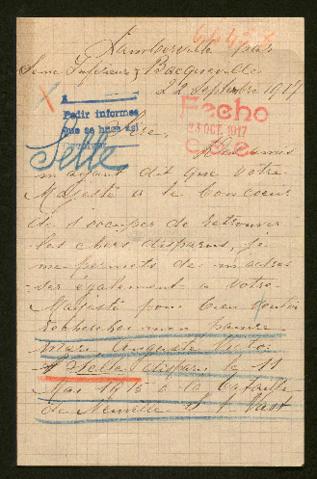 Lamberville par
Seine Inférieure Bacqueville
22 Septembre 1917
Pedir informes
que se hace así
Fecho
23 OCT. 1917
Selle
Sire,
Des amis
m'ayant dit que Votre
Majesté a le bon coeur
de s'occuper de retrouver
les chers disparus, je
me permets de m'adres-
ser également à Votre
Majesté pour bien vouloir
rechercher mon pauvre
mari Auguste
Selle disparu le 11
Mai 1915 à la bataille
de Neuville St Vast